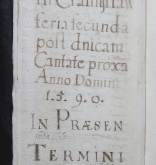 In Crastin
feria secunda
post dnicam
Cantate proxa
Anno Domini
1.5.9.0.
IN PRÆSEN
TERMINI